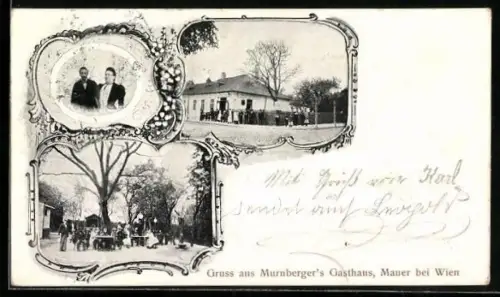 Mit Gruß von Karl
sendet auf Leopold
Gruss aus Murnberger's Gasthaus, Mauer bei Wien